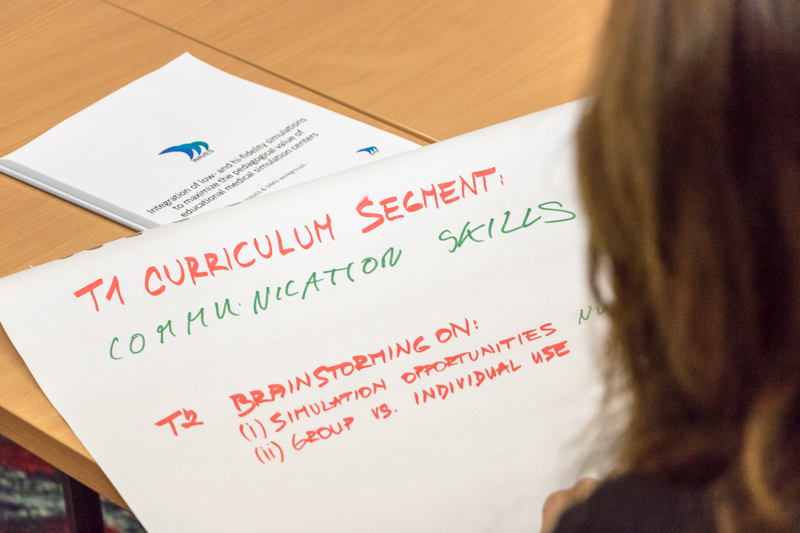 WAVES
Integration of low- and hi-fidelity simulations
to maximize the pedagogical value of
educational medical simulation centers
T1 CURRICULUM SEGMENT:
COMMUNICATION SKILLS
T2 BRAINSTORMING ON:
(i) SIMULATION OPPORTUNITIES
(ii) GROUP VS. INDIVIDUAL USE